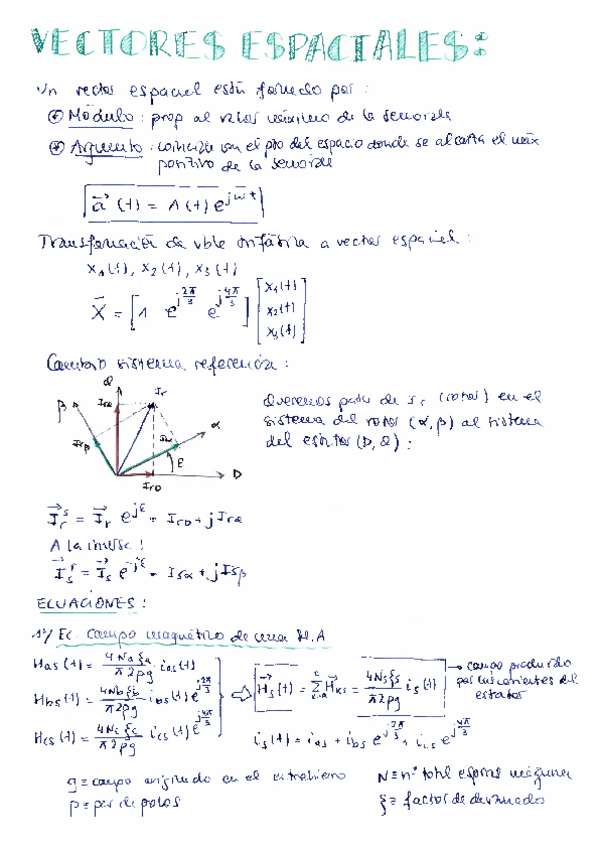 VECTORES ESPACIALES:
Un vector espacial está formado por:
* Módulo: prop al valor máximo de la senoide
* Argumento: coincide con el pto del espacio donde se alcanza el máx
positivo de la senoide
a⃗(t) = A(t) e^{jωt}
Transformación de vble trifásica a vector espacial:
x1(t), x2(t), x3(t)
X⃗ = [1 e^{j2π/3} e^{j4π/3}] [x1(t) x2(t) x3(t)]
Cambio sistema referencia:
Q
Ir
β IrQ α
Irβ Irα
ε D
IrD
Queremos pasar de Ir (rotor) en el
sistema del rotor (α,β) al sistema
del estator (D,Q):
I⃗r^s = I⃗r e^{jε} = IrD + jIrQ
A la inversa!
I⃗s^r = I⃗s e^{-jε} = Isα + jIsβ
ECUACIONES:
1º/ Ec. Campo magnético de una M.A
Has(t) = 4Naξa/π2pg ias(t)
Hbs(t) = 4Nbξb/π2pg ibs(t) e^{j2π/3}
Hcs(t) = 4Ncξc/π2pg ics(t) e^{j4π/3}
⇒ H⃗s(t) = Σ H⃗ks = 4Nsξs/π2pg is(t)
→ campo producido
por las corrientes del
estator
is(t) = ias + ibs e^{j2π/3} + ics e^{j4π/3}
g ≡ campo originado en el entrehierro
N ≡ nº total espiras máquina
p ≡ par de polos
ξ ≡ factor de devanados